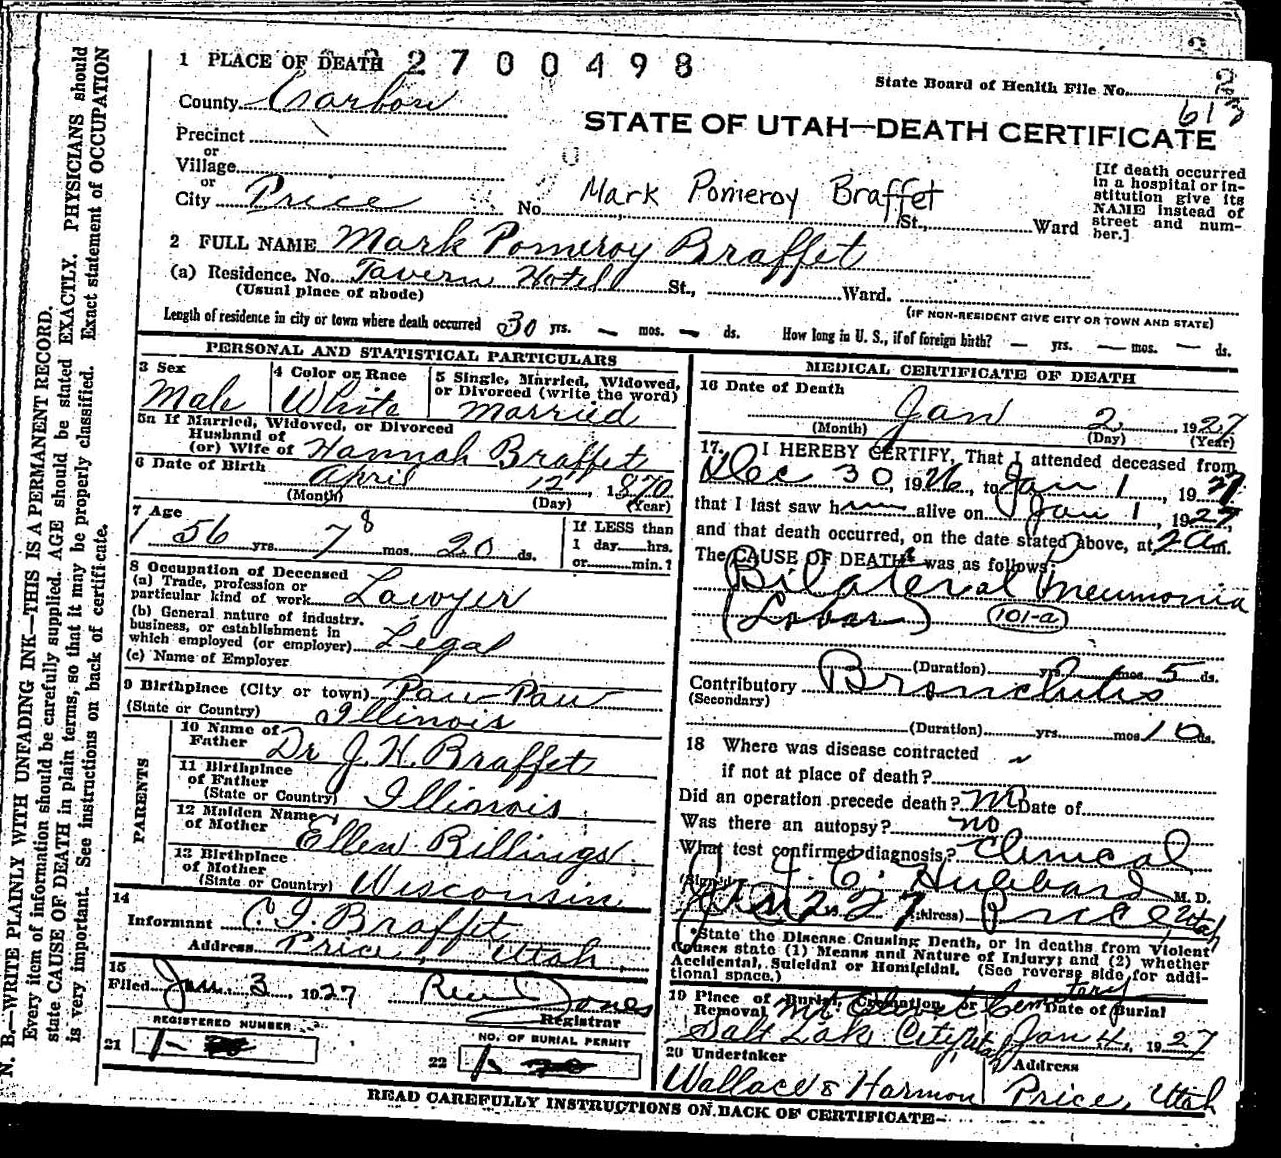 1 PLACE OF DEATH 2700498
State Board of Health File No. 2
613
County Carbon
STATE OF UTAH—DEATH CERTIFICATE
Precinct
or
Village
or
City Price No. Mark Pomeroy Braffet St., Ward
[If death occurred
in a hospital or in-
stitution give its
NAME instead of
street and num-
ber.]
2 FULL NAME Mark Pomeroy Braffet
(a) Residence. No. Tavern Hotel St., Ward.
(Usual place of abode)
(IF NON-RESIDENT GIVE CITY OR TOWN AND STATE)
Length of residence in city or town where death occurred 30 yrs. — mos. — ds. How long in U. S., if of foreign birth? — yrs. — mos. — ds.
PERSONAL AND STATISTICAL PARTICULARS
3 Sex Male
4 Color or Race White
5 Single, Married, Widowed,
or Divorced (write the word)
Married
5a If Married, Widowed, or Divorced
Husband of
(or) Wife of Hannah Braffet
6 Date of Birth April 12, 1870
(Month) (Day) (Year)
7 Age 56 yrs. 7 8 mos. 20 ds.
If LESS than
1 day hrs.
or min.?
8 Occupation of Deceased
(a) Trade, profession or
particular kind of work Lawyer
(b) General nature of industry,
business, or establishment in
which employed (or employer) Legal
(c) Name of Employer
9 Birthplace (City or town) Paw Paw
(State or Country) Illinois
PARENTS
10 Name of
Father Dr J. H. Braffet
11 Birthplace
of Father
(State or Country) Illinois
12 Maiden Name
of Mother Ellen Billings
13 Birthplace
of Mother
(State or Country) Wisconsin
14
Informant C. I. Braffet
Address Price, Utah
15
Filed Jan. 3, 1927 Jones
Registrar
REGISTERED NUMBER
21 1
NO. OF BURIAL PERMIT
22 1
MEDICAL CERTIFICATE OF DEATH
16 Date of Death Jan 2, 1927
(Month) (Day) (Year)
17. I HEREBY CERTIFY, That I attended deceased from
Dec 30, 1926, to Jan 1, 1927
that I last saw him alive on Jan 1, 1927
and that death occurred, on the date stated above, at 2 a m.
The CAUSE OF DEATH* was as follows:
Bilateral Pneumonia
(Lobar) 101-a
(Duration) yrs. mos. 5 ds.
Contributory Bronchitis
(Secondary)
(Duration) yrs. mos. 10 ds.
18 Where was disease contracted
if not at place of death?
Did an operation precede death? no Date of
Was there an autopsy? no
What test confirmed diagnosis? Clinical
(Signed) J. E. Hubbard M. D.
Jan 2 27 (Address) Price Utah
*State the Disease Causing Death, or in deaths from Violent
Causes state (1) Means and Nature of Injury; and (2) whether
Accidental, Suicidal or Homicidal. (See reverse side for addi-
tional space.)
19 Place of Burial, Cremation, or Removal Mt Olivet Cemetery
Date of Burial
Salt Lake City, Utah Jan 4, 1927
20 Undertaker Address
Wallace & Harmon Price, Utah
READ CAREFULLY INSTRUCTIONS ON BACK OF CERTIFICATE
N. B.—WRITE PLAINLY WITH UNFADING INK—THIS IS A PERMANENT RECORD.
Every item of information should be carefully supplied. AGE should be stated EXACTLY. PHYSICIANS should
state CAUSE OF DEATH in plain terms, so that it may be properly classified. Exact statement of OCCUPATION
is very important. See instructions on back of certificate.